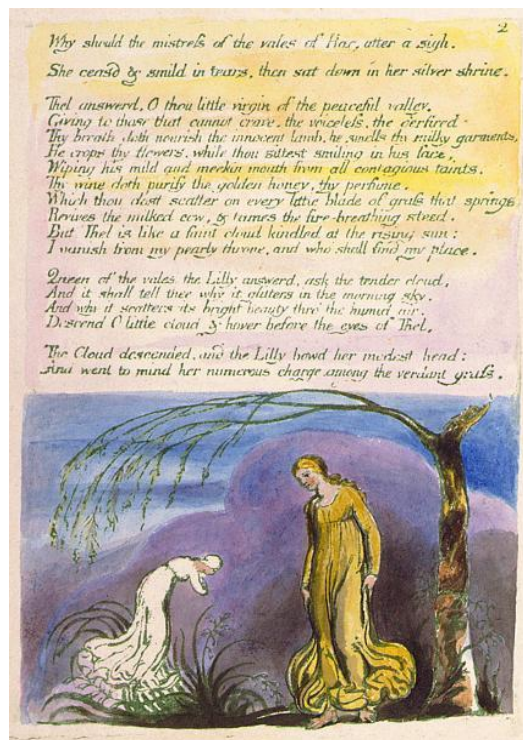 2
Why should the mistreſs of the vales of Har, utter a sigh.
She ceasd & smild in tears, then sat down in her silver shrine.
Thel answerd, O thou little virgin of the peaceful valley,
Giving to those that cannot crave, the voiceleſs, the oerfired
Thy breath doth nourish the innocent lamb, he smells thy milky garments,
He crops thy flowers, while thou sittest smiling in his face,
Wiping his mild and meekin mouth from all contagious taints.
Thy wine doth purify the golden honey, thy perfume,
Which thou dost scatter on every little blade of graſs that springs
Revives the milked cow, & tames the fire-breathing steed.
But Thel is like a faint cloud kindled at the rising sun:
I vanish from my pearly throne, and who shall find my place.
Queen of the vales the Lilly answerd, ask the tender cloud,
And it shall tell thee why it glitters in the morning sky,
And why it scatters its bright beauty thro' the humid air.
Descend O little cloud & hover before the eyes of Thel,
The Cloud descended, and the Lilly bowd her modest head:
And went to mind her numerous charge among the verdant graſs.